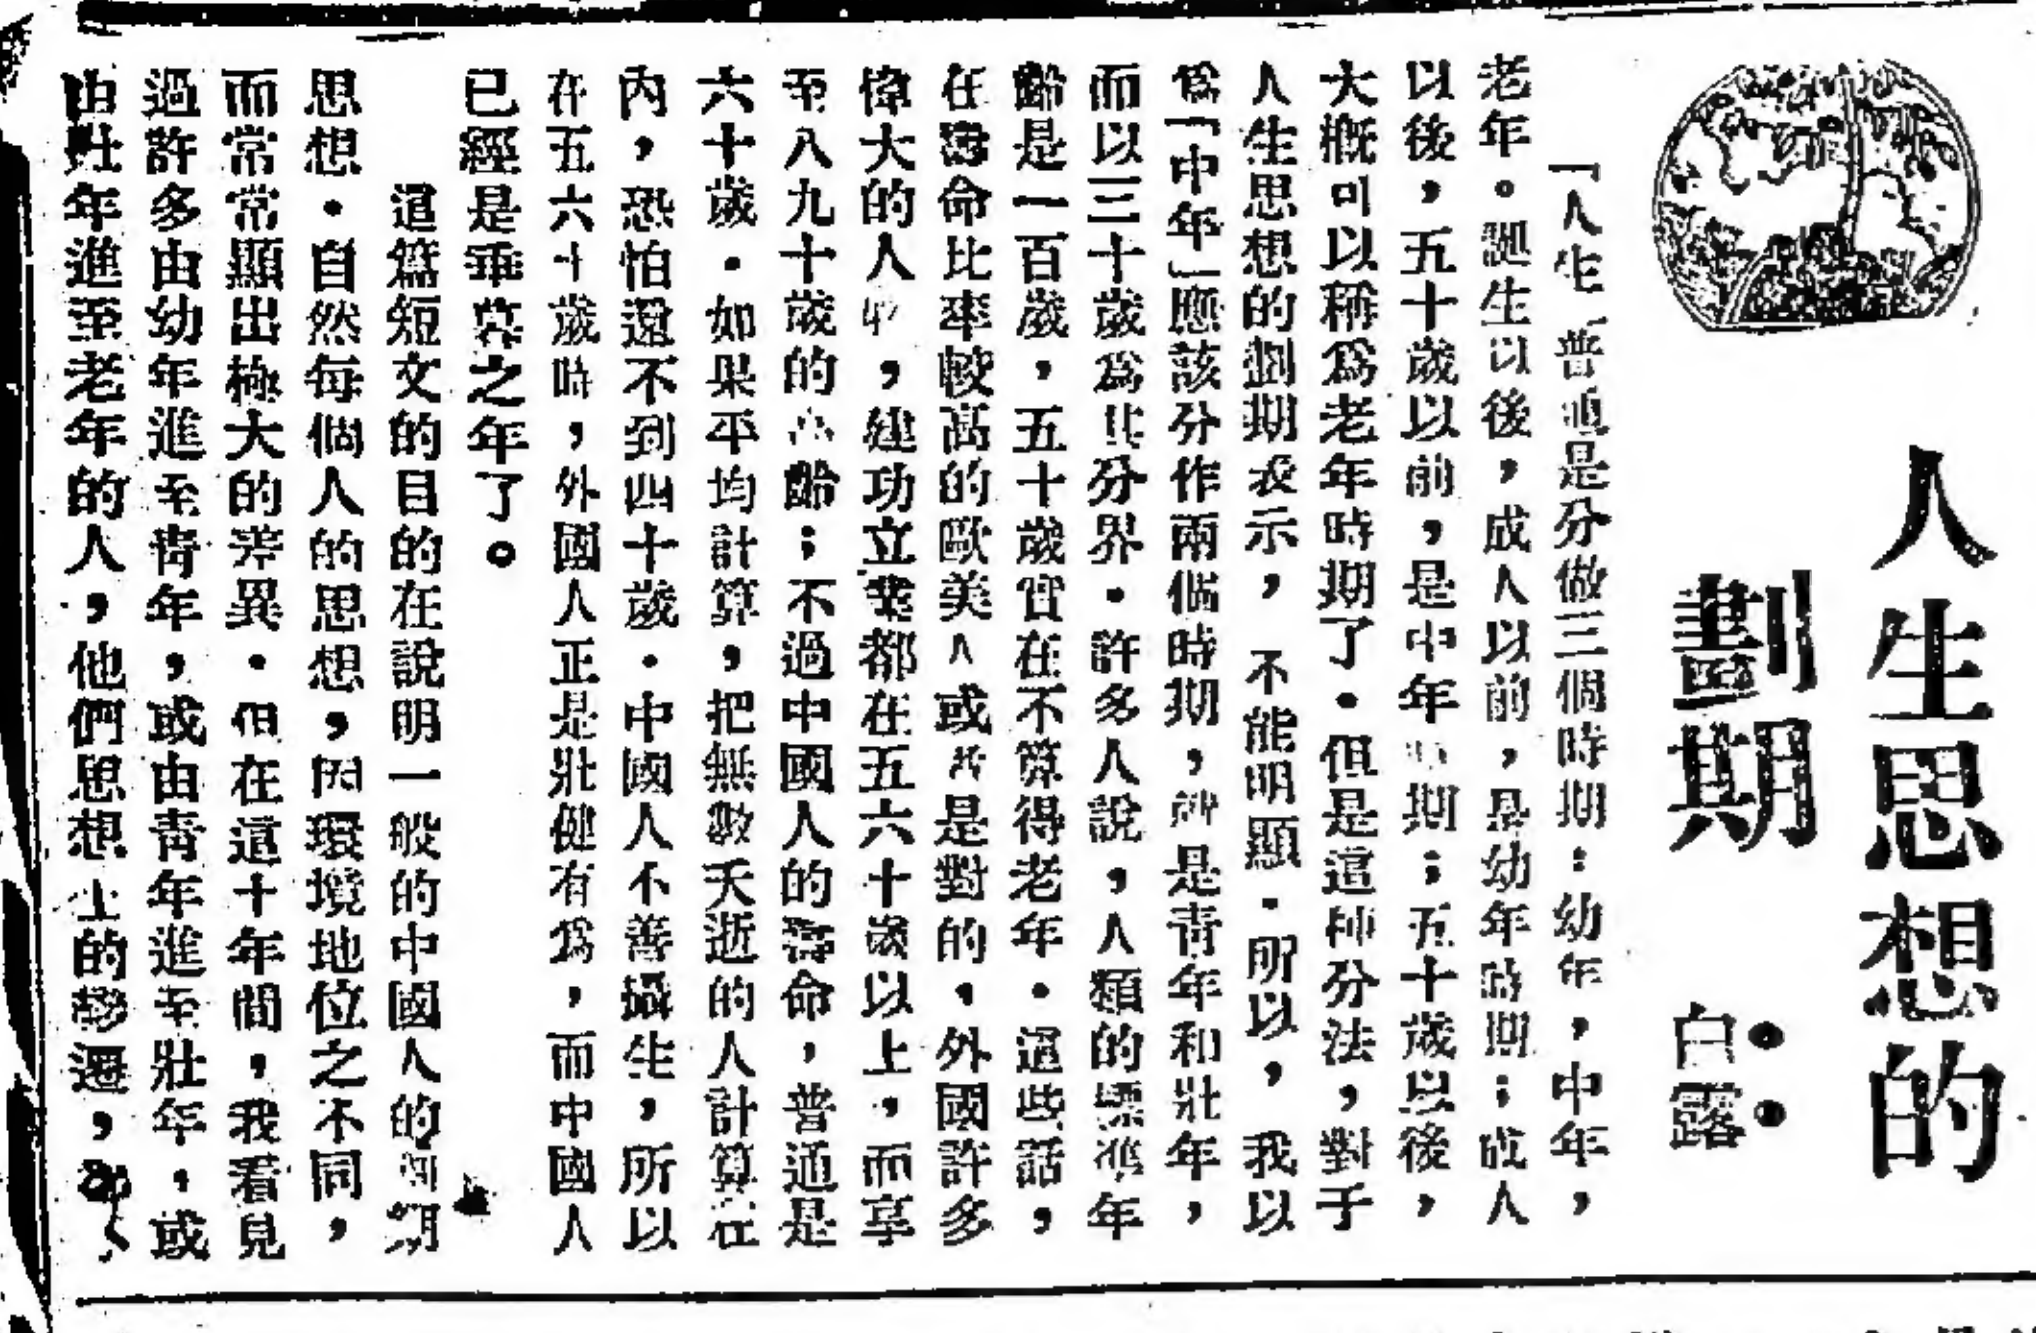 人生思想的
劃期
白露
「人生」普通是分做三個時期：幼年，中年，
老年。誕生以後，成人以前，是幼年時期；成人
以後，五十歲以前，是中年時期；五十歲以後，
大概可以稱爲老年時期了．但是這种分法，對于
人生思想的劃期表示，不能明顯．所以，我以
爲「中年」應該分作兩個時期，就是青年和壯年，
而以三十歲爲其分界．許多人說，人類的標準年
齡是一百歲，五十歲實在不算得老年．這些話，
在壽命比率較高的歐美人或者是對的．外國許多
偉大的人物，建功立業都在五六十歲以上，而享
至八九十歲的高齡；不過中國人的壽命，普通是
六十歲．如果平均計算，把無數夭逝的人計算在
內，恐怕還不到四十歲．中國人不善攝生，所以
在五六十歲時，外國人正是壯健有爲，而中國人
已經是垂暮之年了。
這篇短文的目的在說明一般的中國人的劃期
思想．自然每個人的思想，因環境地位之不同，
而常常顯出極大的差異．但在這十年間，我看見
過許多由幼年進至青年，或由青年進至壯年，或
由壯年進至老年的人，他們思想上的變遷，